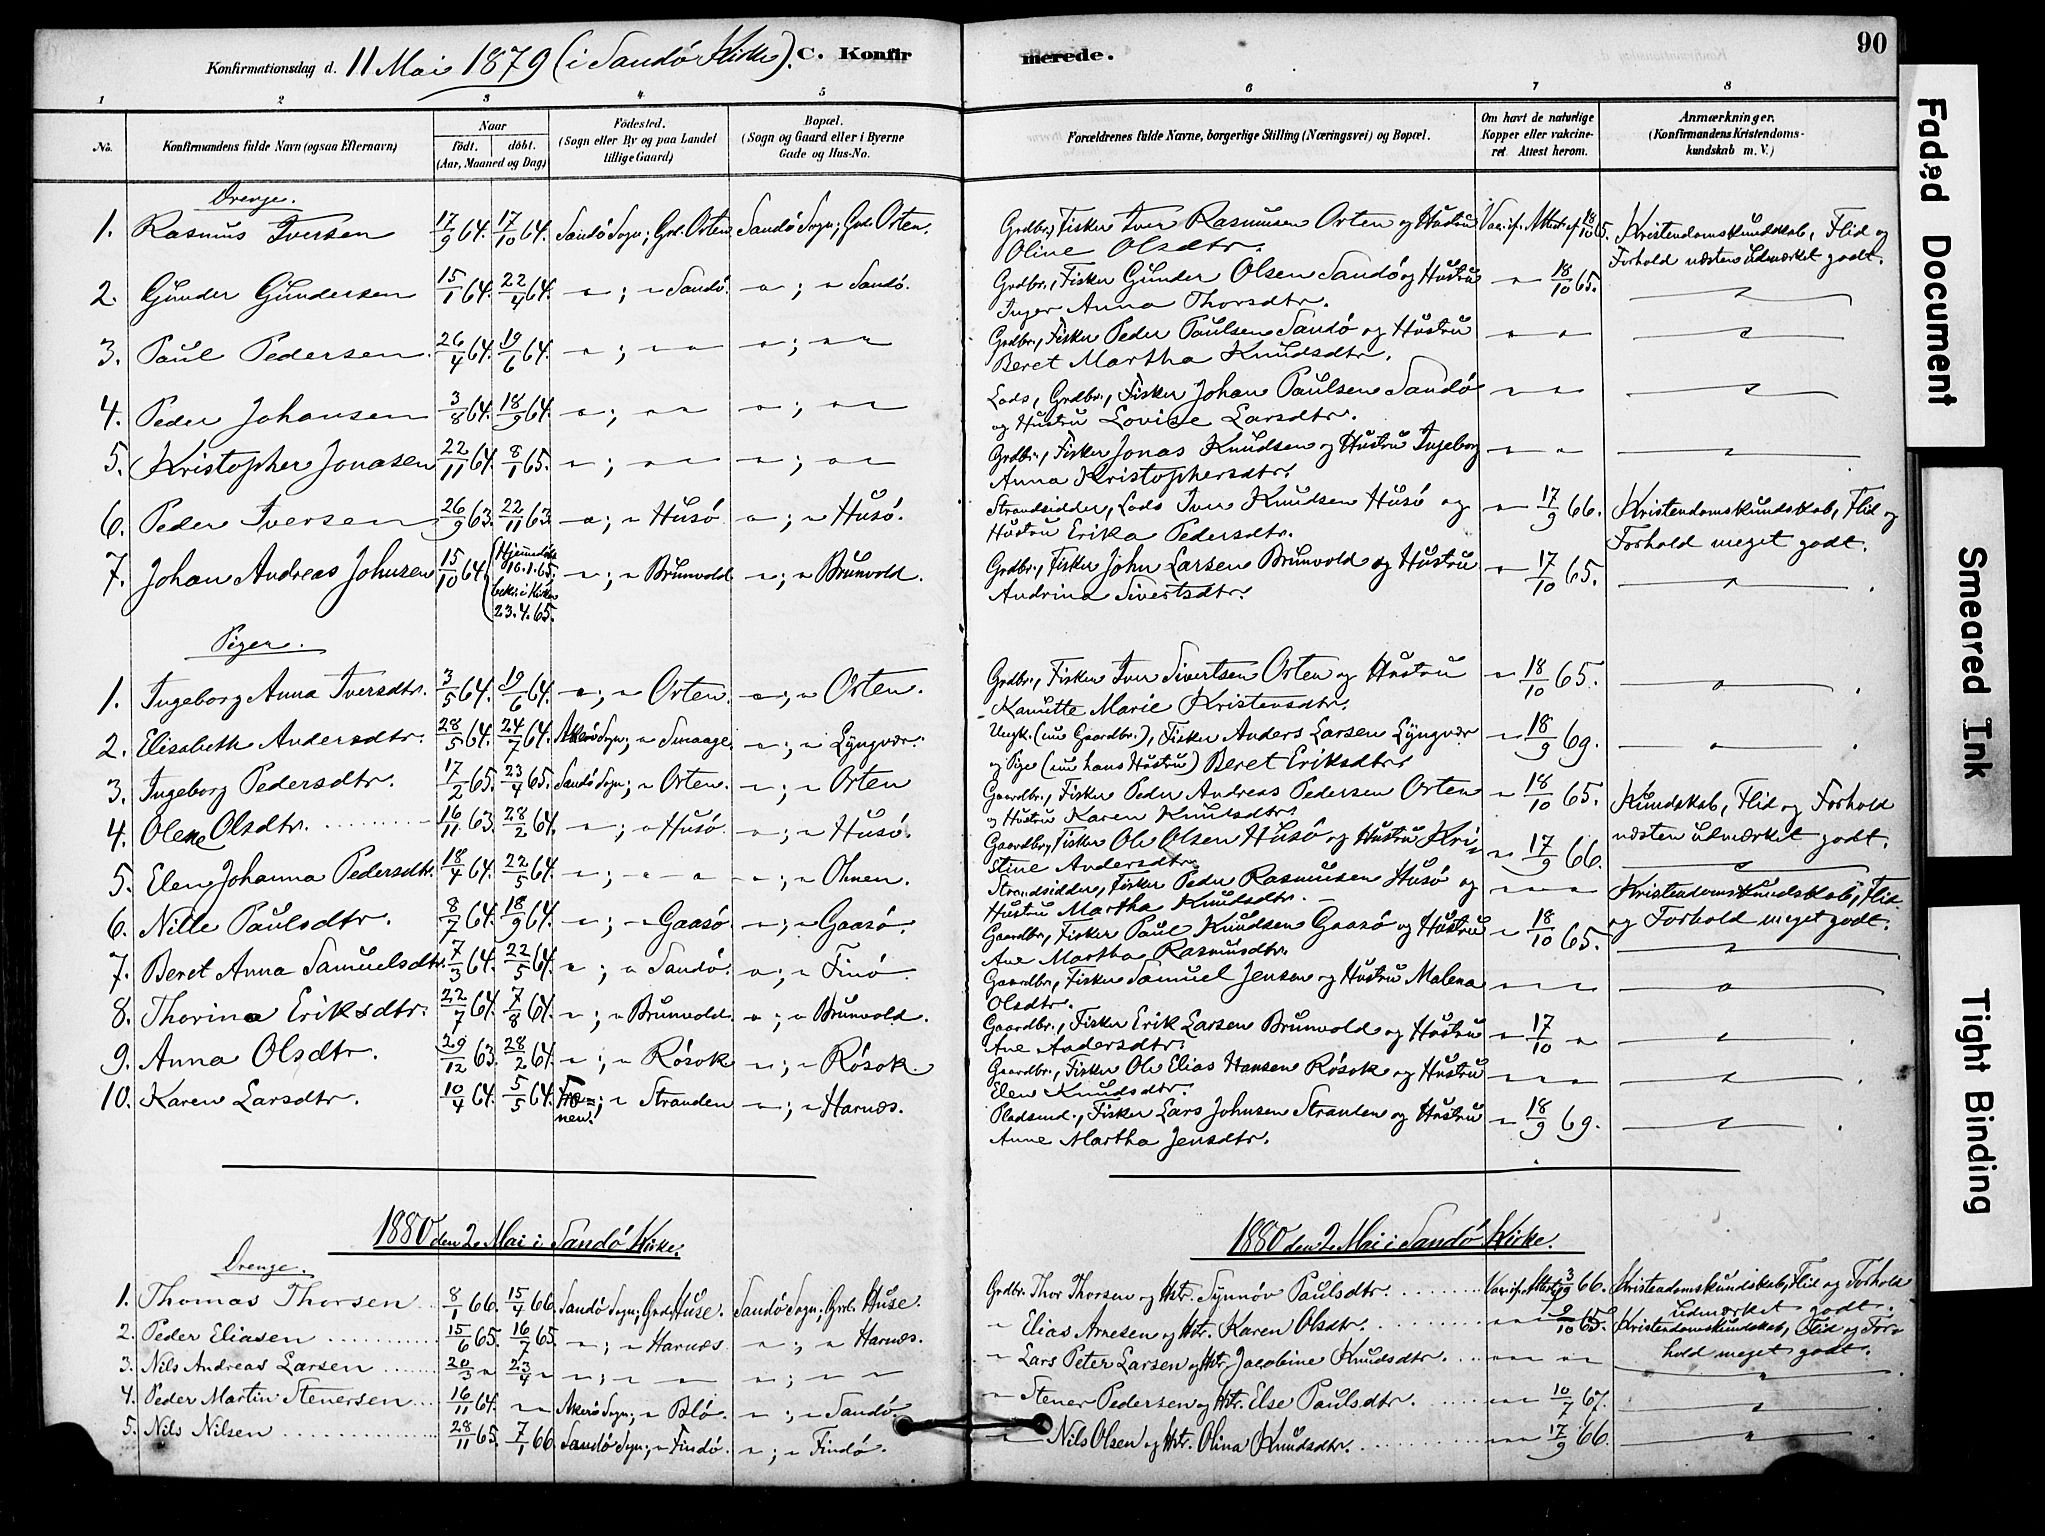 Konfirmationsdag d. 11 Mai 1879 (i Sandö Kirke). C. Konfirmerede. 90
1 2 3 4 5 6 7 8
No. Konfirmandens fulde Navn (ogsaa Efternavn) Naar födt. döbt. (Aar, Maaned og Dag) Födested. (Sogn eller By og paa Landet tillige Gaard) Bopæl. (Sogn og Gaard eller i Byerne Gade og Hus-No. Forældrenes fulde Navne, borgerlige Stilling (Næringsvei) og Bopæl. Om havt de naturlige Kopper eller vakcineret. Attest herom. Anmærkninger. (Konfirmandens Kristendomskundskab m. V.)
Drenge.
1. Rasmus Iversen 17/9 64. 17/10 64. Sandö Sogn; Grd. Orten Sandö Sogn; Grd. Orten. Grdbr., Fisker Iver Rasmusen Orten og Hustru Oline Olsdtr. Vac. if. Attest af 18/10 65. Kristendomskundskab, Flid og Forhold næsten udmærket godt.
2. Gunder Gundersen 15/1 64. 22/4 64. — " — ; " Sandö. — " — ; " Sandö. Grdbr., Fisker Gunder Olsen Sandö og Hustru Inger Anna Thorsdtr. — " — 18/10 65. — " —
3. Paul Pedersen. 26/4 64. 19/6 64. — " — ; " " — " — ; " " Grdbr., Fisker Peder Paulsen Sandö og Hustru Beret Martha Knudsdtr. " " — " —
4. Peder Johansen 3/8 64. 18/9 64. — " — ; " " — " — ; " " Lods, Grdbr., Fisker Johan Paulsen Sandö og Hustru Lovise Larsdtr. " " — " —
5. Kristopher Jonasen 22/11 64. 8/1 65. — " — ; " " — " — ; " " Grdbr., Fisker Jonas Knudsen og Hustru Ingeborg Anna Kristophersdtr. " " — " —
6. Peder Iversen 26/9 63. 22/11 63. — " — ; " Husö — " — ; " Husö. Strandsidder, Lods Iver Knudsen Husö og Hustru Erika Pedersdtr. — " — 17/9 66. Kristendomskundskab, Flid og Forhold meget godt.
7. Johan Andreas Johnsen 15/10 64 (Hjemmedöbt 10.1.65. bekr. i Kirken 23.4.65. — " — ; " Brunvold — " — ; " Brunvold. Grdbr., Fisker John Larsen Brunvold og Hustru Andrina Sivertsdtr. — " — 17/10 65. — " —
Piger.
1. Ingeborg Anna Iversdtr. 3/5 64. 19/6 64. — " — ; " Orten — " — ; " Orten. Grdbr., Fisker Iver Sivertsen Orten og Hustru Kanutte Marie Kristensdtr. — " — 18/10 65. — " —
2. Elisabeth Andersdtr. 28/5 64. 24/7 64. Akerö Sogn; " Smaage. — " — ; " Lyngvær. Ungk. (nu Gaardbr.), Fisker Anders Larsen Lyngvær og Pige (nu hans Hustru) Beret Eriksdtr. — " — 18/9 69. — " —
3. Ingeborg Pedersdtr. 17/2 65. 23/4 65. Sandö Sogn; " Orten. — " — ; " Orten Gaardbr., Fisker Peder Andreas Pedersen Orten og Hustru Karen Knudsdtr. " 18/10 65. Kundskab, Flid og Forhold næsten udmærket godt.
4. Olene Olsdtr. 16/11 63. 28/2 64. — " — ; " Husö. — " — ; " Husö. Gaardbr., Fisker Ole Olsen Husö og Hustru Kristine Andersdtr. " 17/9 66. — " —
5. Elen Johanna Pedersdtr. 18/4 64. 22/5 64. — " — ; " " — " — ; " Ohnen. Strandsidder, Fisker Peder Rasmusen Husö og Hustru Martha Knudsdtr. — " " " Kristendomskundskab, Flid og Forhold meget godt.
6. Nille Paulsdtr. 8/7 64. 18/9 64. — " — ; " Gaasö. — " — ; " Gaasö. Gaardbr., Fisker Paul Knudsen Gaasö og Hustru Ane Martha Rasmusdtr. " 18/10 65. — " —
7. Beret Anna Samuelsdtr. 7/3 64. 22/5 64. " ; " Sandö. " ; " Finö Gaardbr., Fisker Samuel Jensen og Hustru Malena Olsdtr. " " " — " —
8. Thorina Eriksdtr. 22/7 64. 7/8 64. — " — ; " Brunvold. " ; " Brunvold. Gaardbr., Fisker Erik Larsen Brunvold og Hustru Ane Andersdtr. " 17/10 " — " —
9. Anna Olsdtr. 29/12 63. 28/2 64. — " — ; " Rösok — " — ; " Rösok. Gaardbr., Fisker Ole Elias Hansen Rösok og Hustru Elen Knudsdtr. " " " — " —
10. Karen Larsdtr. 10/4 64. 5/5 64. " Stranden — " — ; " Harnæs. Pladsmd., Fisker Lars Johnsen Stranden og Hustru Anne Martha Jensdtr. " 18/9 69. — " —
1880 den 2. Mai i Sandö Kirke. 1880 den 2. Mai i Sandö Kirke.
Drenge.
1. Thomas Thorsen 8/1 66. 15/4 66. Sandö Sogn; Grd. Huse. Sandö Sogn; Grd. Huse. Grdbr. Thor Thorsen og Hstr. Synnöv Paulsdtr. Vac. if. Attest 3/9 66. Kristendomskundskab, Flid og Forhold udmærket godt.
2. Peder Eliasen 15/6 65. 16/7 65. — " — ; " Harnæs. — " — ; " Harnæs. " Elias Arnesen og Hstr. Karen Olsdtr. " " 9/10 65. Kristendomskundskab, Flid og Forhold meget godt.
3. Nils Andreas Larsen 20/3 " 23/4 " " ; " " " ; " " " Lars Peter Larsen og Hstr. Jacobine Knudsdtr. " " " " — " —
4. Peder Martin Stenersen 16/11 64. " " Akerö Sogn; " Blö. — " — ; " Sandö. " Stener Pedersen og Hstr. Else Paulsdtr. " " 10/7 67. — " —
5. Nils Nilsen 28/11 65. 7/1 66. Sandö Sogn; " Findö. — " — ; " Findö. " Nils Olsen og Hstr. Olina Knudsdtr. " " 17/9 66. — " —
Faded Document
Smeared Ink
Tight Binding